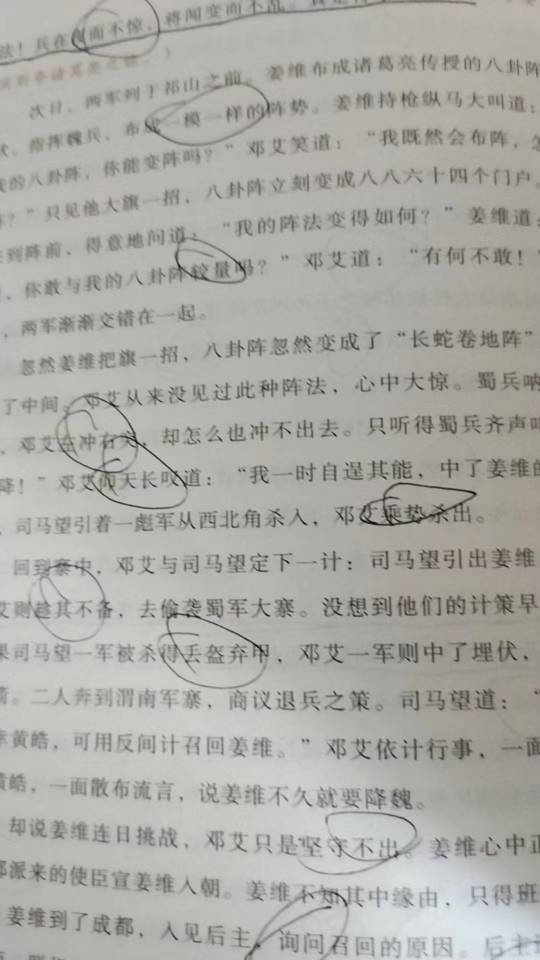 法！兵在 面而不惊，将闻变而不乱。
次日，两军列于祁山之前。姜维布成诸葛亮传授的八卦阵
，指挥魏兵，布成一模一样的阵势。姜维持枪纵马大叫道：
我的八卦阵，你能变阵吗？”邓艾笑道：“我既然会布阵，怎
？”只见他大旗一招，八卦阵立刻变成八八六十四个门户。
到阵前、得意地问道：“我的阵法变得如何？”姜维道：
，你敢与我的八卦阵较量吗？”邓艾道：“有何不敢！”
，两军渐渐交错在一起。
忽然姜维把旗一招，八卦阵忽然变成了“长蛇卷地阵”
了中间。邓艾从来没见过此种阵法，心中大惊。蜀兵呐
，邓艾左冲右突，却怎么也冲不出去。只听得蜀兵齐声叫
降！”邓艾仰天长叹道：“我一时自逞其能，中了姜维的
，司马望引着一彪军从西北角杀入，邓艾乘势杀出。
回到寨中，邓艾与司马望定下一计：司马望引出姜维
艾则趁其不备，去偷袭蜀军大寨。没想到他们的计策早
果司马望一军被杀得丢盔弃甲，邓艾一军则中了埋伏，
箭。二人奔到渭南军寨，商议退兵之策。司马望道：“
黄皓，可用反间计召回姜维。”邓艾依计行事，一面
黄皓，一面散布流言，说姜维不久就要降魏。
却说姜维连日挑战，邓艾只是坚守不出。姜维心中正
派来的使臣宣姜维入朝。姜维不知其中缘由，只得班
姜维到了成都，入见后主，询问召回的原因。后主